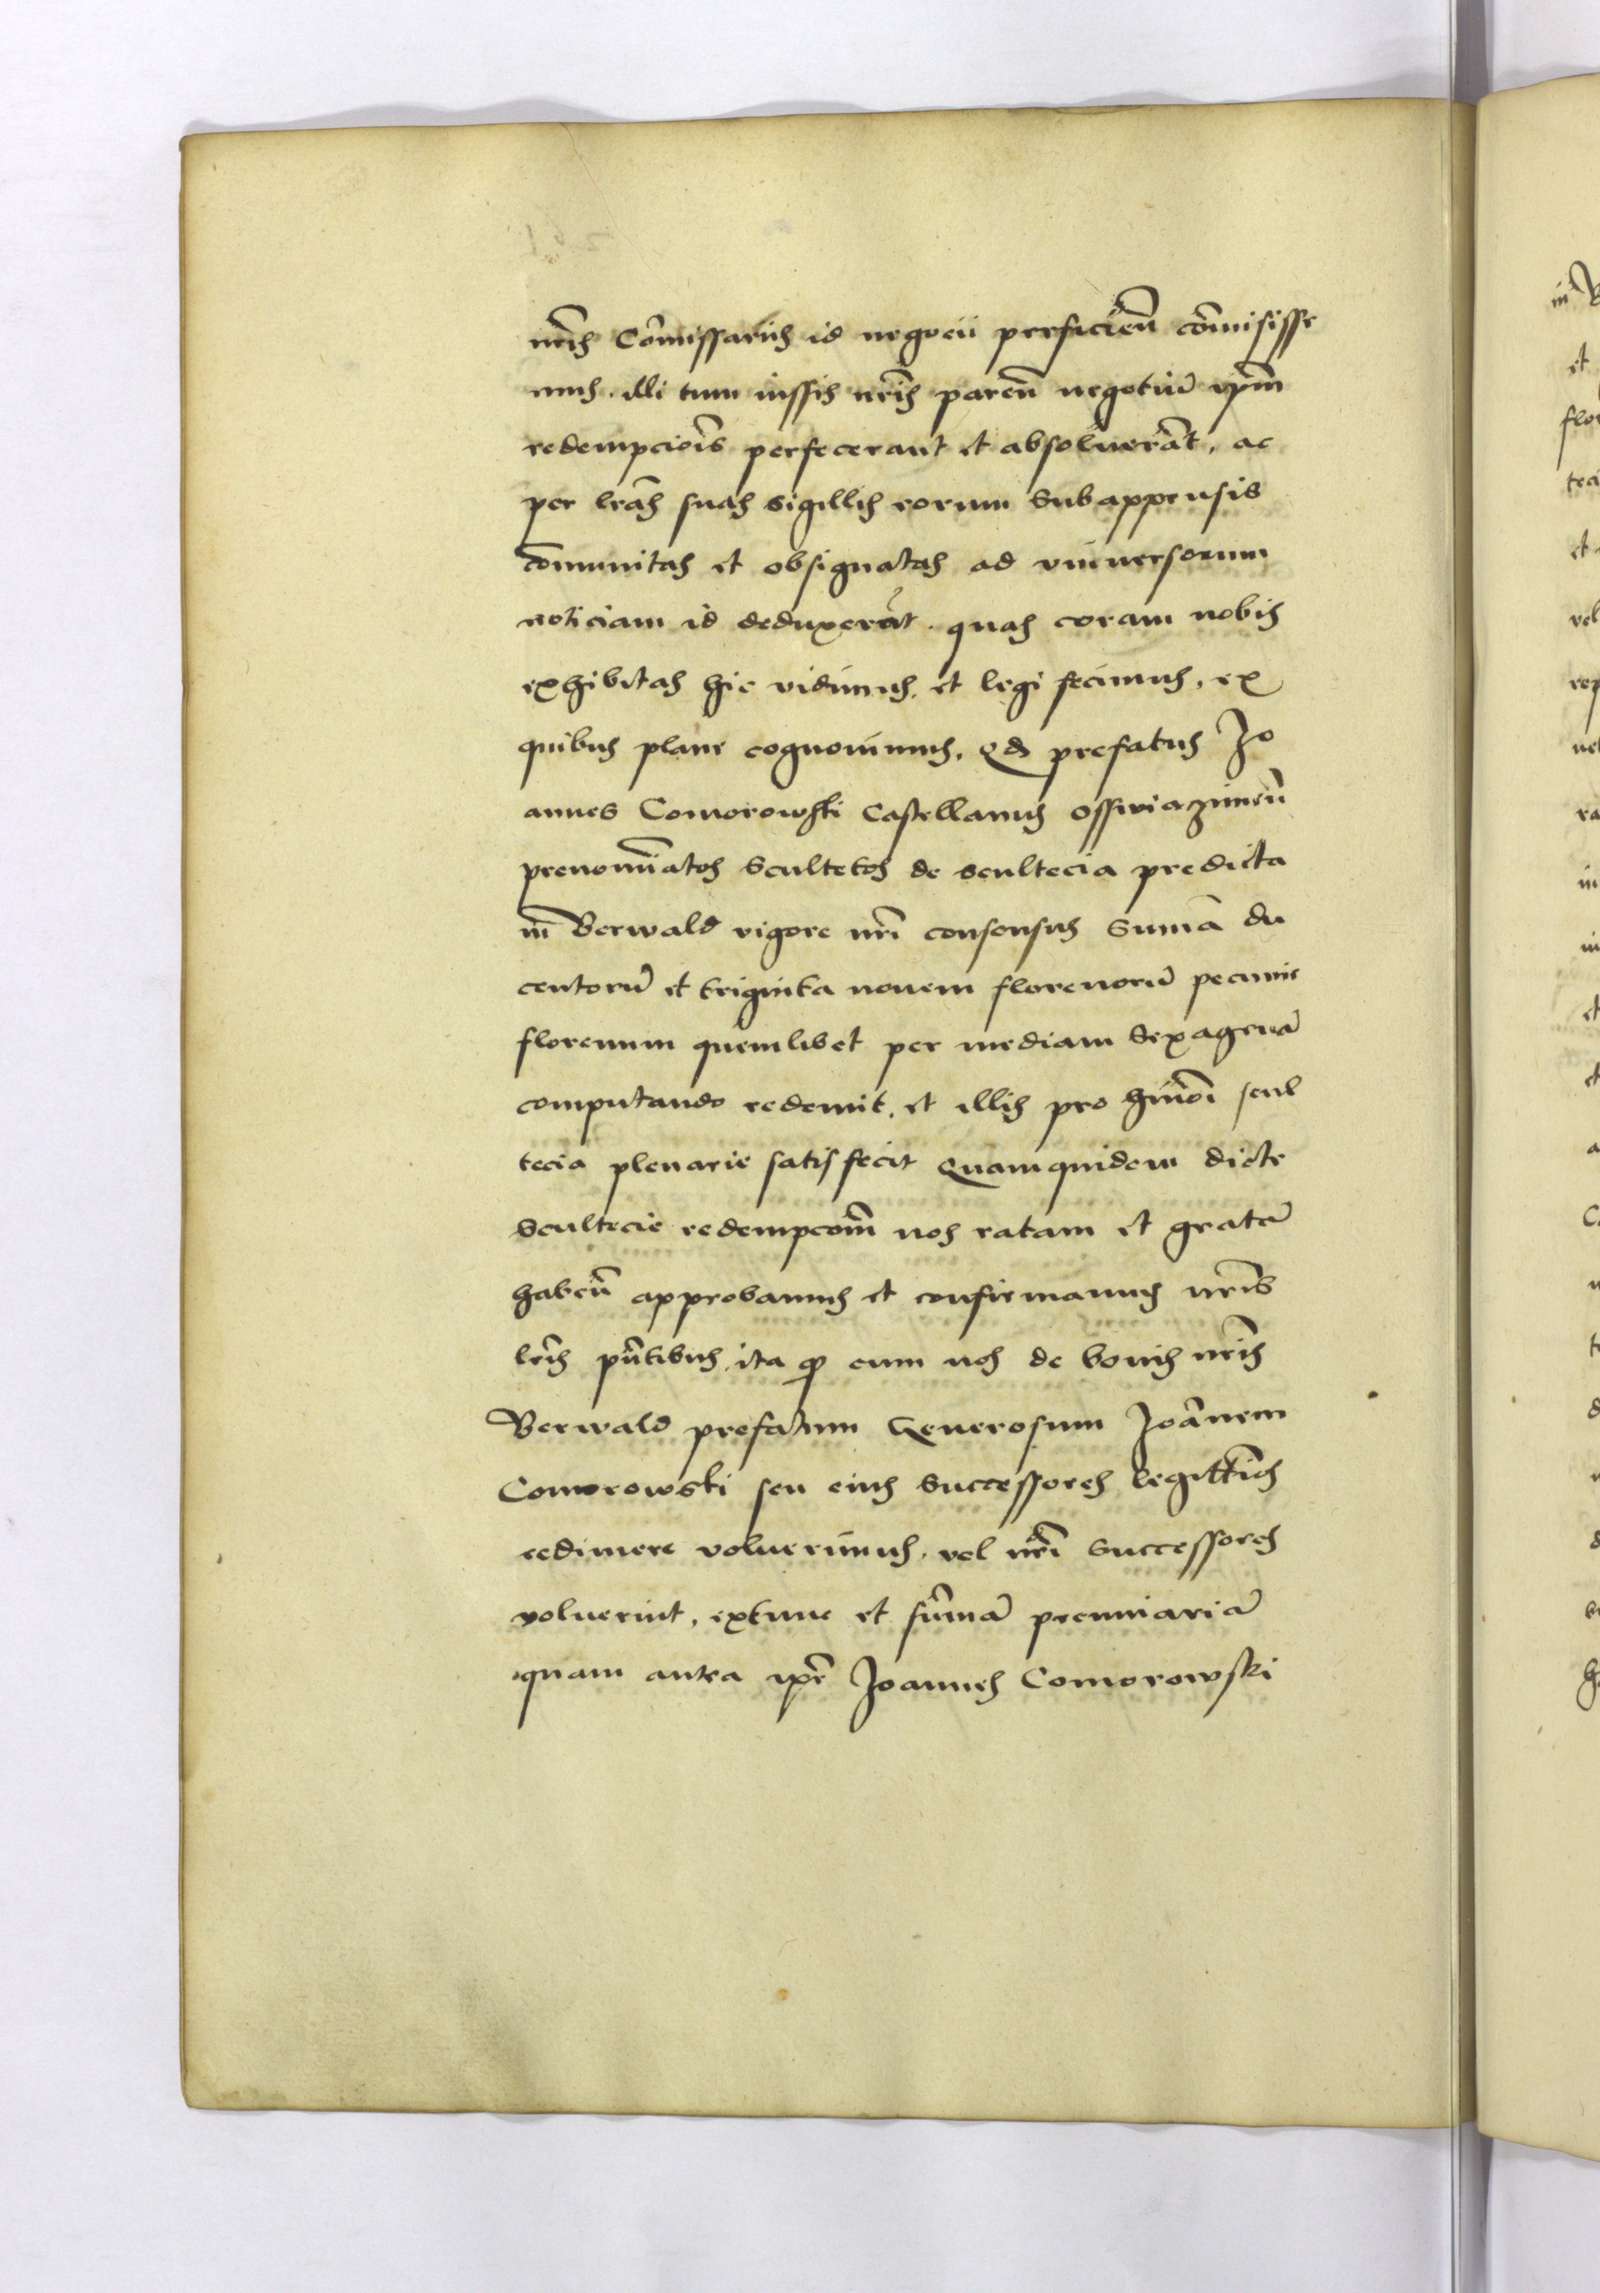 nr̃is Com̃issariis id negocii perficien̄ com̃isisse
mus. illi tum iussis nr̃is paren̄ negotiũ ip̃m
redempciõis perfecerant et absoluerãt, ac
per lr̃as suas sigillis eorum subappensis
com̃unitas et obsignatas ad vniuersorum
noticiam id deduxerãt. quas coram nobis
exhibitas hic vidimus, et legi fecimus, ex
quibus plane cognouimus, Qd prefatus Jo
annes Comorowski Castellanus Osswiazimen̄
prenomĩatos Scultetos de scultecia predicta
in Berwald vigore nr̃i consensus Summã du
centorũ et triginta nouem florenorũ pecunie
florenum quemlibet per mediam Sexagenã
computando redemit, et illis pro hmõi scul
tecia plenarie satisfecit Quamquidem dicte
Scultecie redempcõm nos ratam et gratã
haben̄ approbamus et confirmamus nr̃is
lr̃is pñtibus, ita ꝙ cum nos de bonis nr̃is
Berwald prefatum Generosum Joãnem
Comorowski seu eius Successores legittĩos
redimere voluerimus, vel nr̃i Successores
voluerint, extunc et sum̃ã pecuniariã
quam antea ip̃e Joannes Comorowski